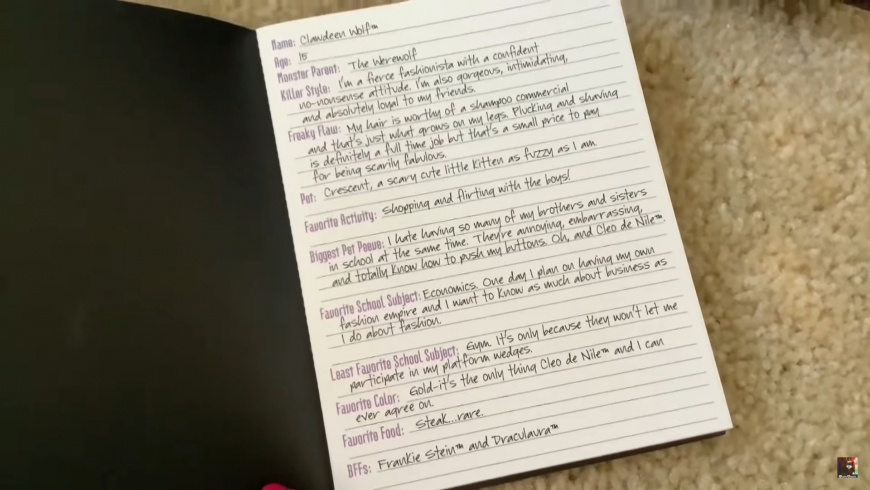 Name: Clawdeen Wolf™
Age: 15
Monster Parent: The Werewolf
Killer Style: I'm a fierce fashionista with a confident
no-nonsense attitude. I'm also gorgeous, intimidating,
and absolutely loyal to my friends.
Freaky Flaw: My hair is worthy of a shampoo commercial
and that's just what grows on my legs. Plucking and shaving
is definitely a full time job but that's a small price to pay
for being scarily fabulous.
Pet: Crescent, a scary cute little kitten as fuzzy as I am.
Favorite Activity: Shopping and flirting with the boys!
Biggest Pet Peeve: I hate having so many of my brothers and sisters
in school at the same time. They're annoying, embarrassing,
and totally know how to push my buttons. Oh, and Cleo de Nile™
Favorite School Subject: Economics. One day I plan on having my own
fashion empire and I want to know as much about business as
I do about fashion.
Least Favorite School Subject: Gym. It's only because they won't let me
participate in my platform wedges.
Favorite Color: Gold-it's the only thing Cleo de Nile™ and I can
ever agree on.
Favorite Food: Steak...rare.
BFFs: Frankie Stein™ and Draculaura™